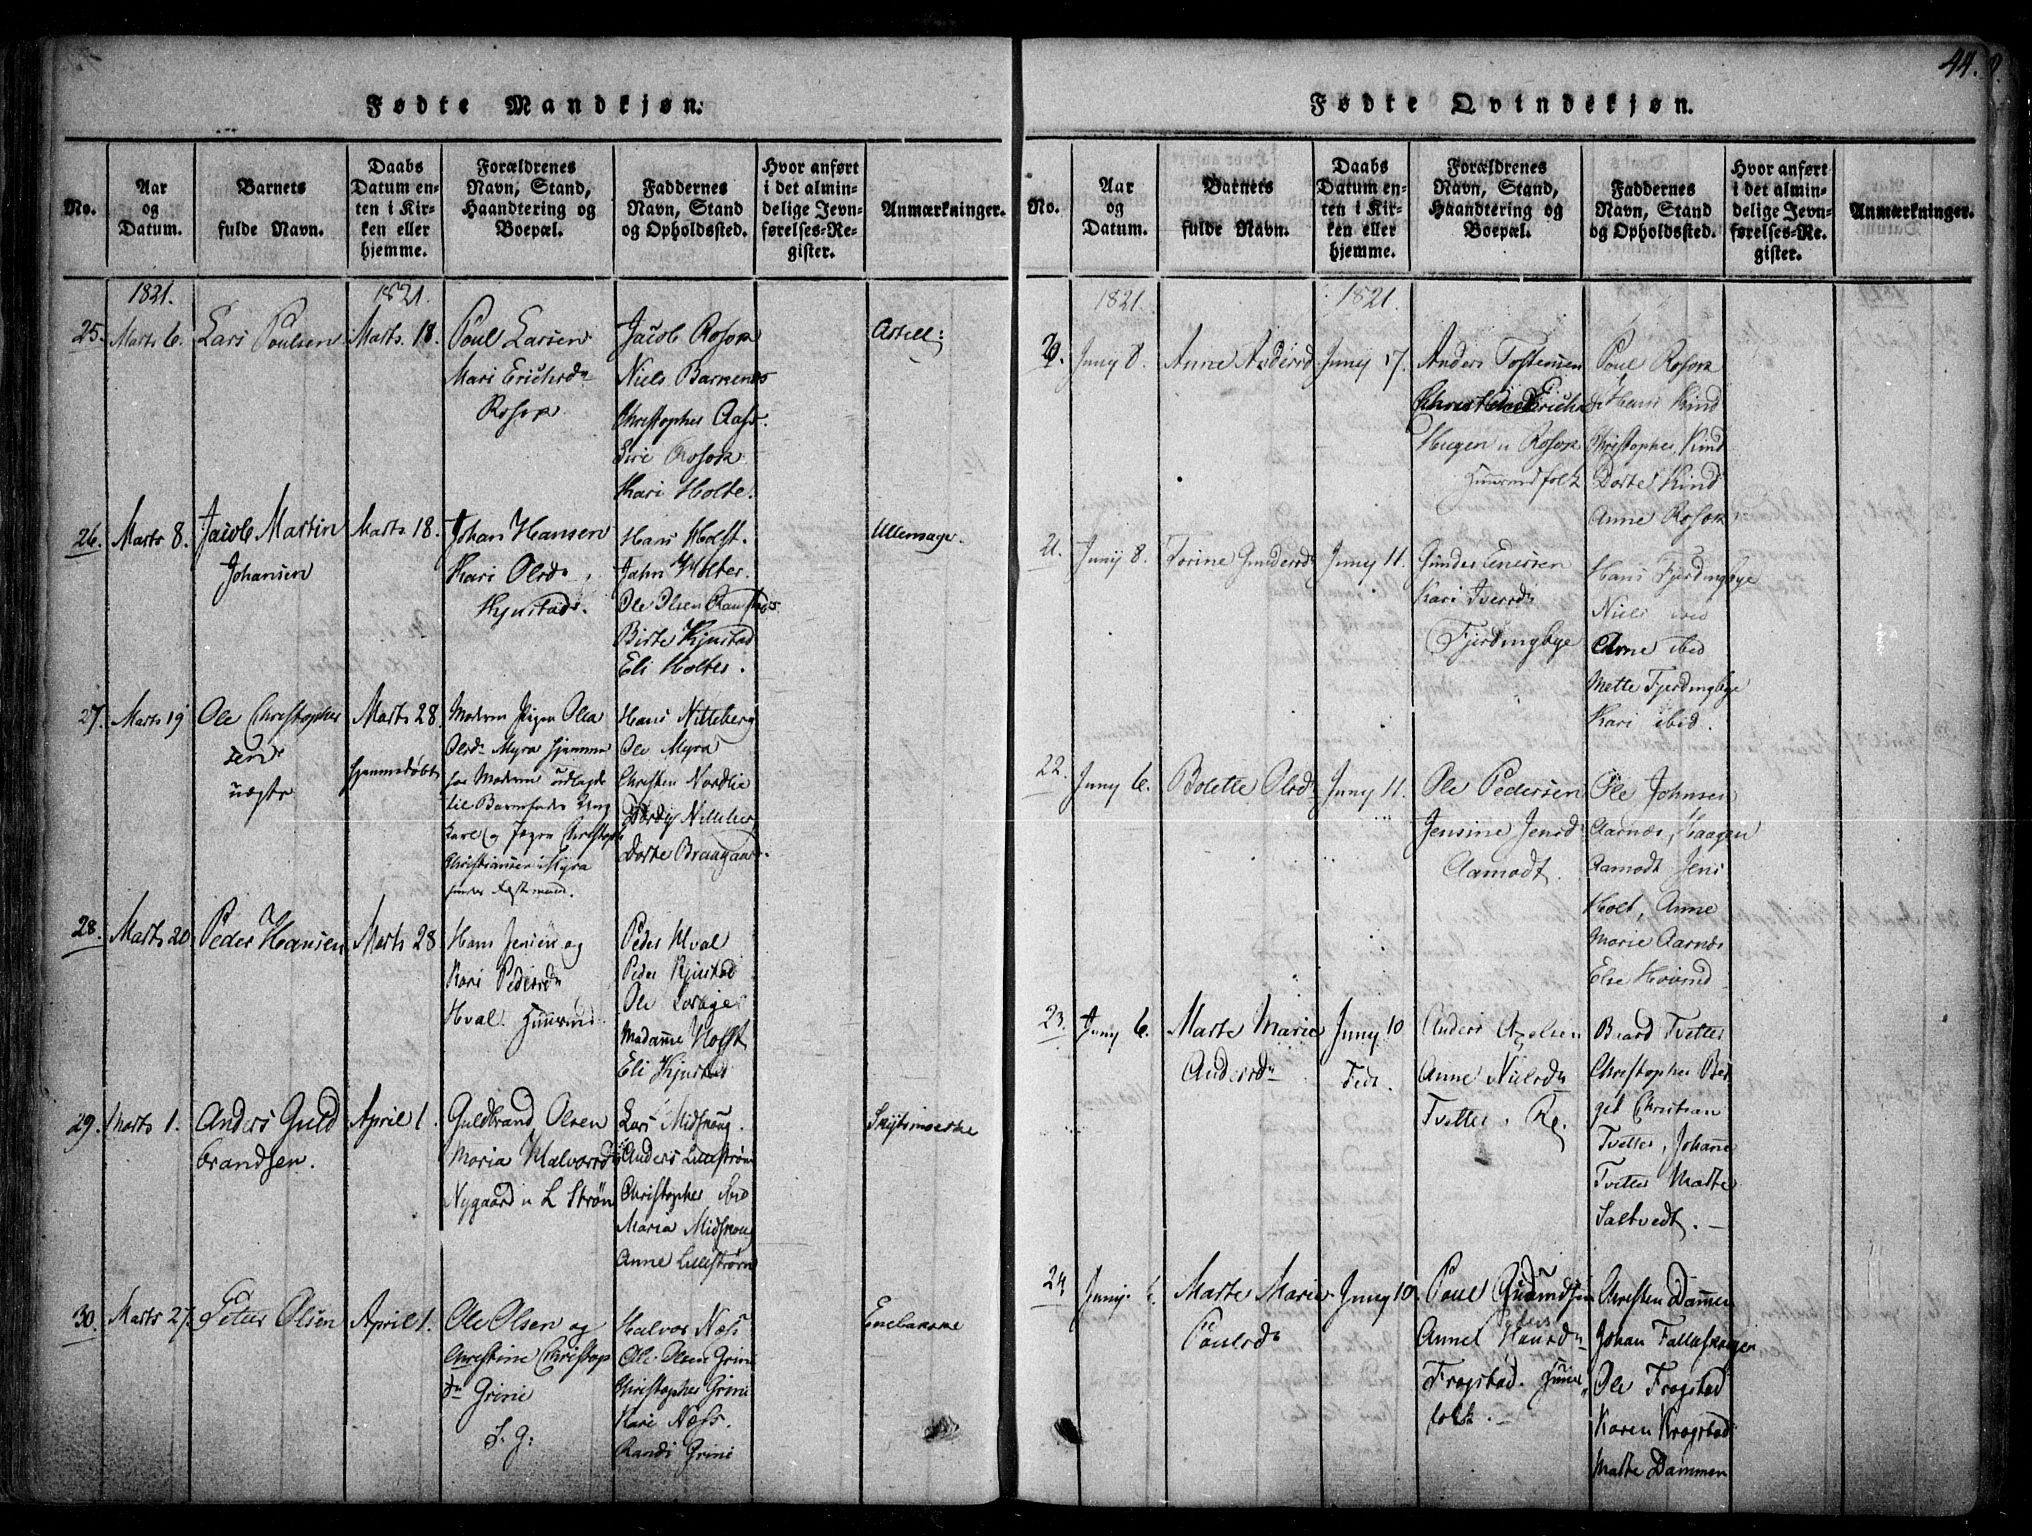 44.
Fødte Mandkjøn.
No.
Aar
og
Datum.
Barnets
fulde Navn.
Daabs
Datum en-
ten i Kir-
ken eller
hjemme.
Forældrenes
Navn, Stand,
Haandtering og
Boepæl.
Faddernes
Navn, Stand
og Opholdssted.
Hvor anført
i det almin-
delige Jevn-
førelses-Re-
gister.
Anmærkninger.
1821.
1821.
25.
Marts 6.
Lars Poulsen
Marts. 18.
Poul Larsen
Mari Erichsdr
Rosox
Jacob Rosox
Niels Barnenes
Christopher Aas.
Siri Rosox
Kari Holte.
26.
Marts 8.
Jacob Martin
Johansen
Marts. 18.
Johan Hansen
Kari Olsdr
Kjustad.
Hans Holst.
Jahn Holter.
Ole Olsen Ramstad
Birte Kjustad
Eli Holter.
Ullensager.
27.
Marts 19
Ole Christopher
sen
uægte
Marts 28
hjemmedøbt
Moderen Pigen Olea
Olsdr Myra hjemme
hos Moderen udlagde
til Barnefader Ung
karl og Christoph
Christiansen Myra
Hans Nitteberg
Ole Myra
Christen Nordlie
Nitteberg
Dorte Braagaard.
28.
Marts 20
Peder Hansen
Marts 28
Hans Jensen og
Kari Pedersdr
Hval. Huusmd.
Peder Hval
Peder Kjustad
Ole Lorage
Madamme Holst
Eli Kjustad
29.
Marts 1.
Anders Guld
brandsen.
April 1.
Guldbrand Olsen
Maria Halvorsdr
Nygaard u L Strøm
Lars Midskoug.
Anders Lillestrøm
Christopher ibid
Maria Midskoug
Anne Lillestrøm
30.
Marts 27.
Peter Olsen
April 1.
Ole Olsen og
Christine Christop
dr Grini
S. G:
Halvor Næss
Ole Olsen Grini
Christopher Grini
Kari Næss.
Randi Grini
Enebakke
Fødte Qvindekjøn.
No.
Aar
og
Datum.
Barnets
fulde Navn.
Daabs
Datum en-
ten i Kir-
ken eller
hjemme.
Forældrenes
Navn, Stand,
Haandtering og
Boepæl.
Faddernes
Navn, Stand
og Opholdssted.
Hvor anført
i det almin-
delige Jevn-
førelses-Re-
gister.
Anmærkninger.
1821.
1821.
20.
Junij 8.
Anne Andersd
Junij 17.
Anders Tostensen
Erichsdr
Haugen u Rosox
Huusmdfolk
Poul Rosox
Hans Kind
Christopher Kind
Dorte Kind
Anne Rosox
21.
Junij 8.
Torine Gundersd
Junij 11.
Gunder Enersen
Kari Iversdr
Fjerdingbye
Hans Fjerdingbye
Niels ibid
Arne ibid
Mette Fjerdingbye
Kari ibid.
22.
Junij 6.
Bolette Olsdr
Junij 11.
Ole Pedersen
Jensine Jensd
Aamodt.
Ole Johnsen
Aarnæs, Haagen
Aamodt Jens
Holt, Anne
Marie Aarnæs
Else Hovind
23.
Junij 6.
Marte Marie
Andersdr
Junij 10
Anders Axelsen
Anne Nielsdr
Tvetter.
Tvetter
Christopher Ber
get Christian
Tvetter, Johanne
Tvetter Marte
Saltvedt.
24
Junij. 6.
Marte Marie
Poulsdr
Junij 10
Poul Gudmundsen
Anne Hansdr
Frogstad. Huus
folk.
Christen Dammen
Johan Tallaskogen
Ole Frogstad
Karen Krogstad
Marte Dammen